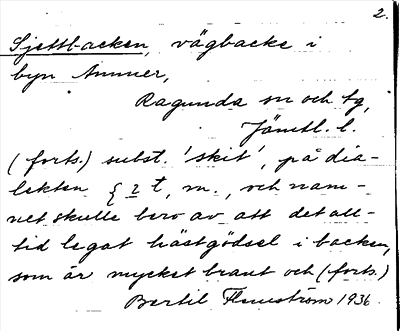 2.
Sjettbacken, vägbacke i
byn Ammer,
Ragunda sn och tg,
Jämtl. l.
(forts.) subst. 'skit', på dia-
lekten t, m., och nam-
net skulle bero av att det all-
tid legat hästgödsel i backen,
som är mycket brant och (forts.)
Bertil Flemström 1936.